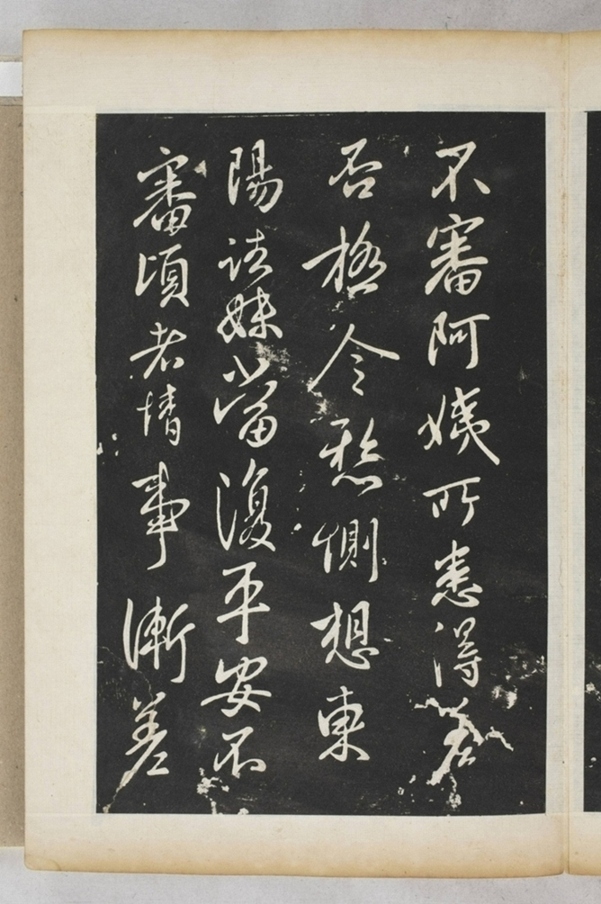 不審阿姨所患得差
否極令懸惻想東
陽諸妹當復平安不
審頃者情事漸差